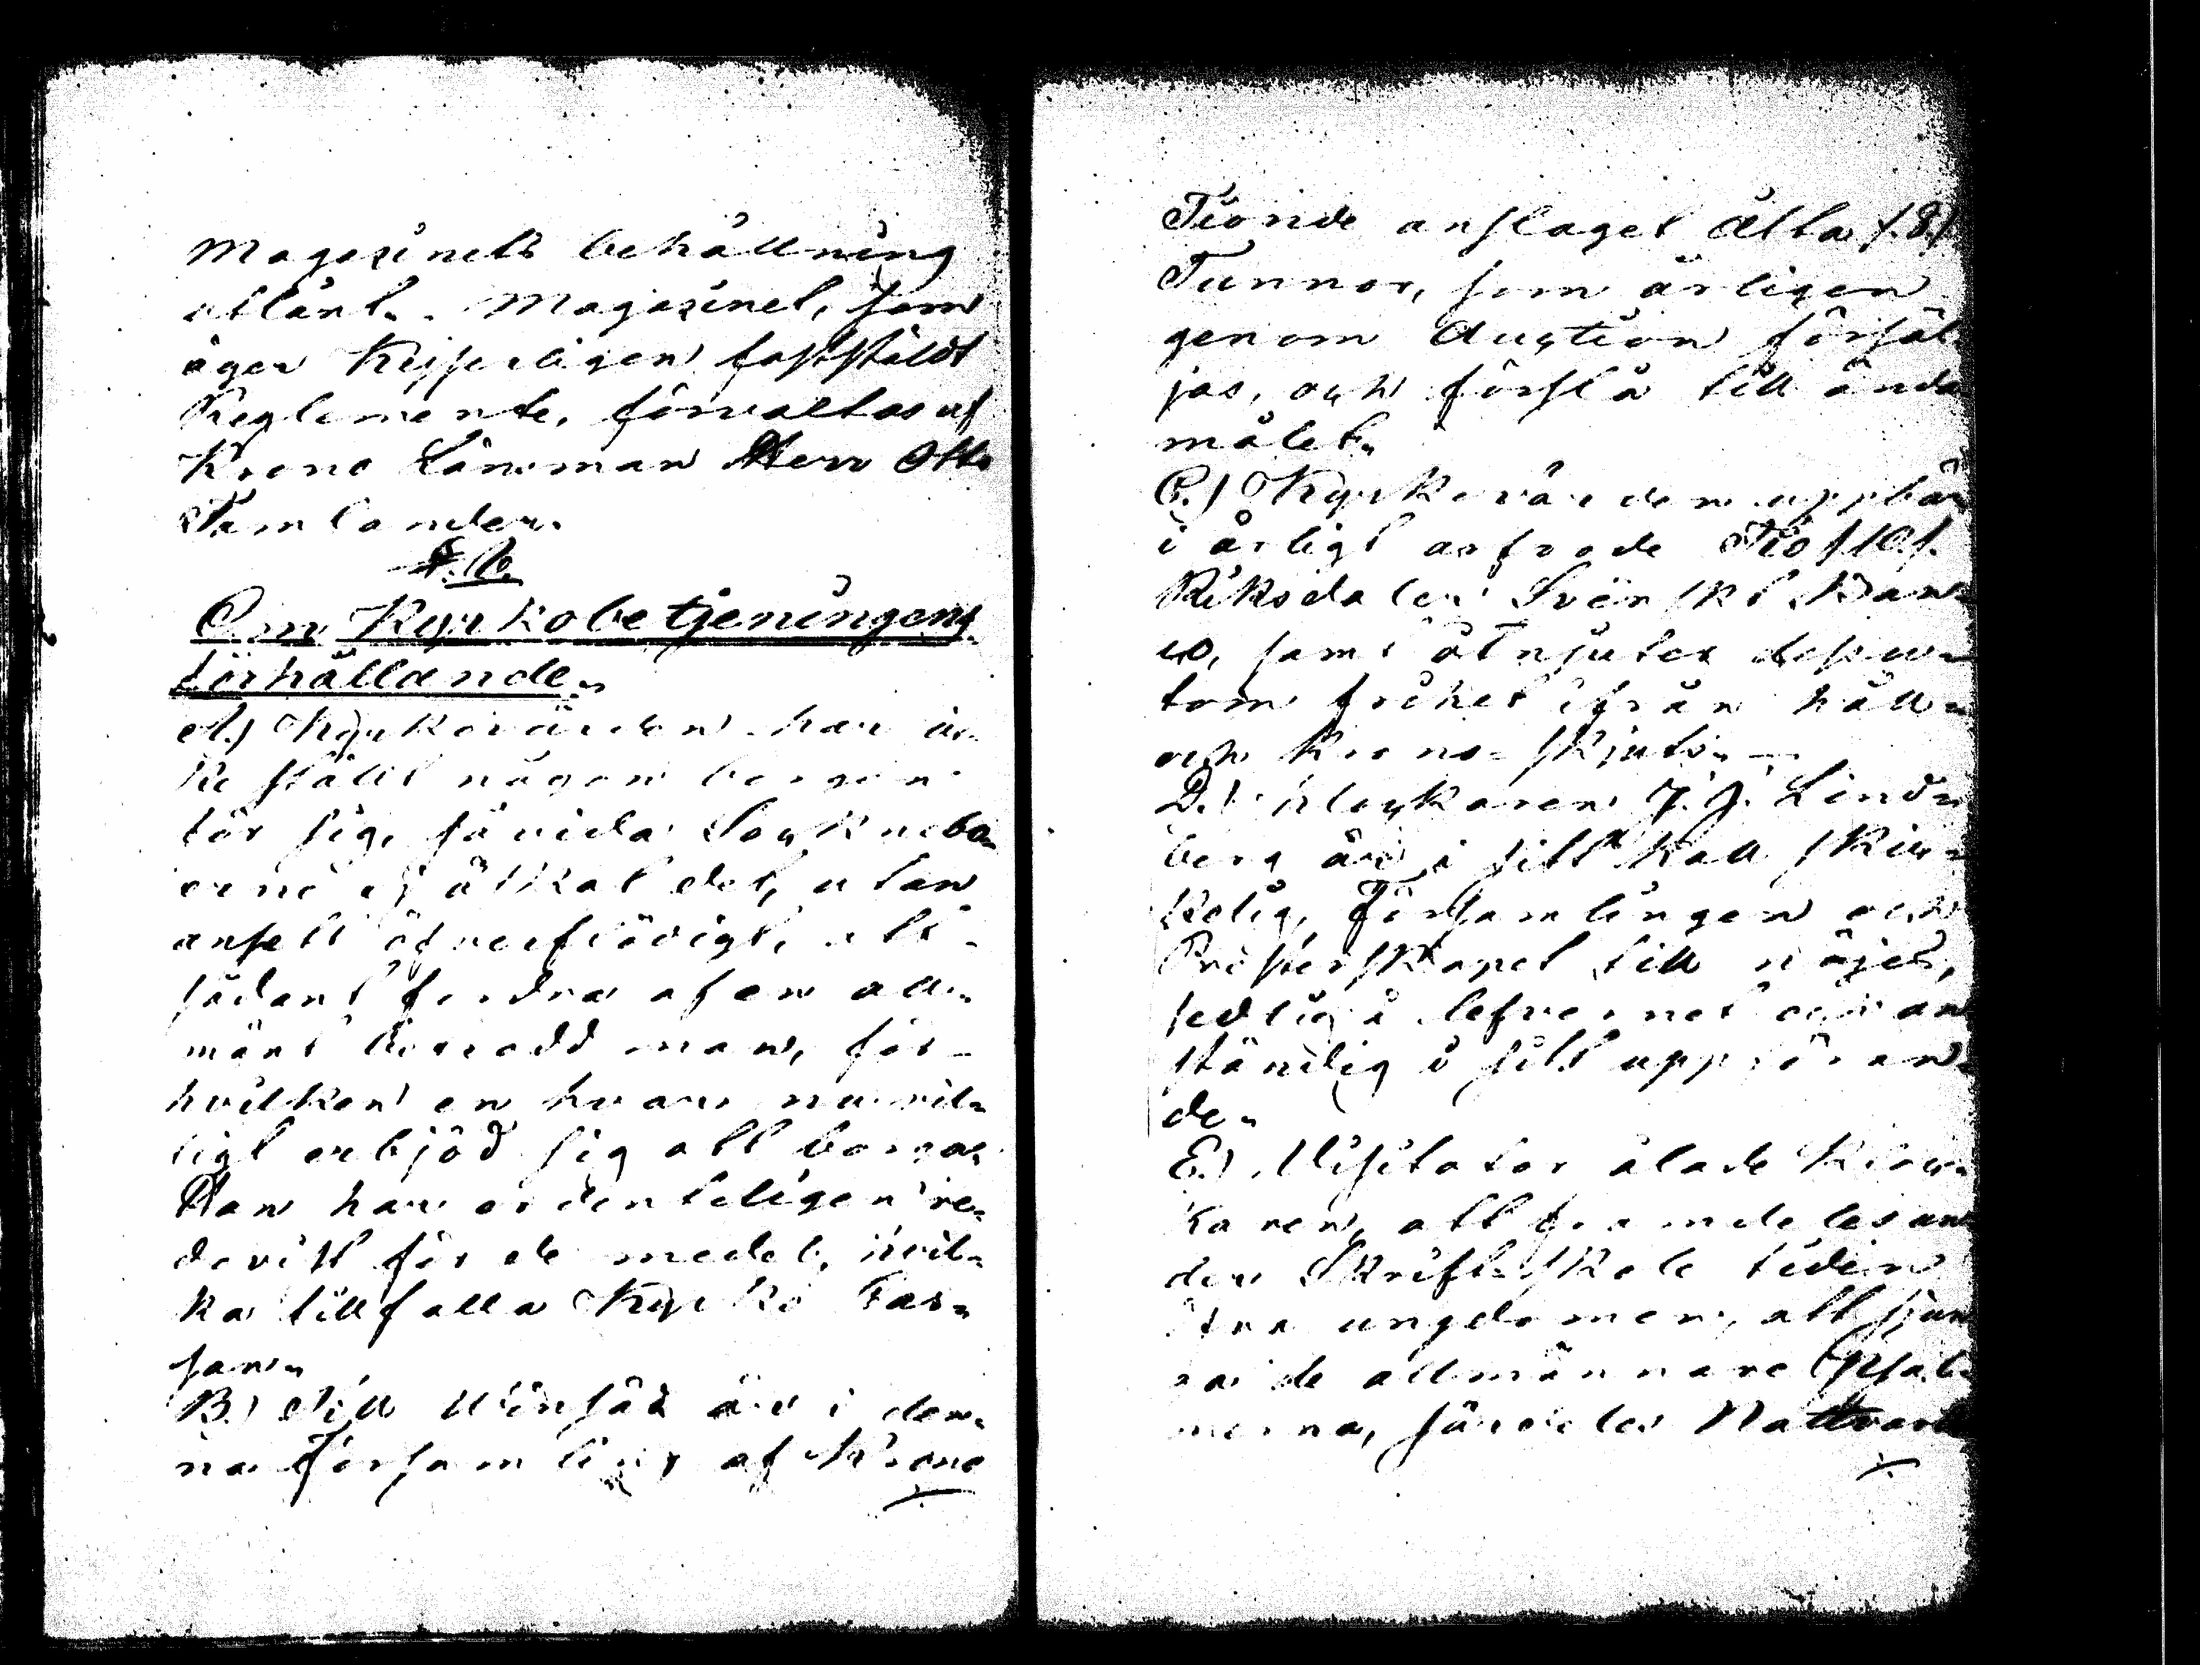 Magazinets behållning
utlänt. Magazinet, som
äger Kejserligen fastställdt
Reglemente, förvaltas af
Krono Länsman Herr Otto
Tamlander.
§. 10.
Om Kyrkobetjeningens
förhållande.
A.) Kyrkovärden har ic-
ke ställt någon borgen
för sig, såvida Sockneboe-
erne ej åtkat det, utan
ansett öfverflödigt, att
sådant fordra af en all-
mänt boxradd man, för
hvilken en hvar nu vil-
ligt erbjöd sig att borga.
Han har ordenteligen re-
dovist för de medel, hvil-
ka tillfalla Kyrko Cas-
san.
B.) Till Winsäd är i den-
na Församling af Krono
Tionde anslaget Åtta /8/
Tunnor, som årligen
genom Auction försäl-
jas, och förslå till ända
målet.
C.) Kyrkovärden uppbär
i årligt arfvode Tio /10/.
Riksdaler Svenskt Ban-
co, samt åtnjuter dessu-
tom frihet ifrån håll-
och krono-skjuts.
D.) Klockaren J. J. Lind-
berg är i sitt kall skic-
kelig, Församlingen och
Presterskapet till nöjes,
sedlig i lefvernet och an
ständig i sitt uppföran-
de.
E.) Visitator ålade Kloc-
karen, att framdeles un
der Skrift-skole tiden
öfva ungdomen, att sjun
ga de allmännare Psal-
merna, särdeles Nattvard